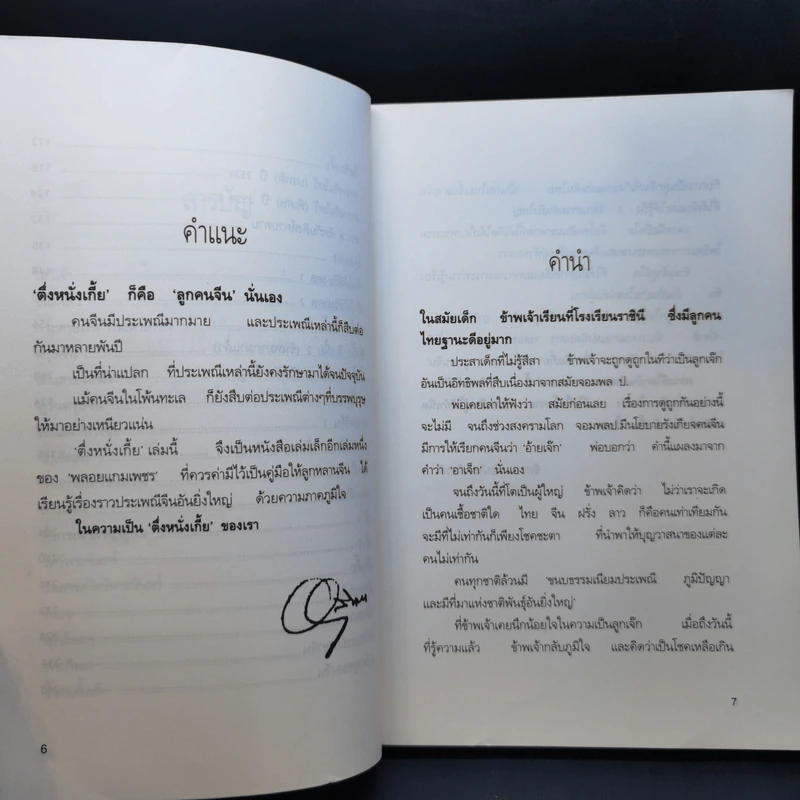 คำแนะ
'ตึ่งหนั่งเกี้ย' ก็คือ 'ลูกคนจีน' นั่นเอง
คนจีนมีประเพณีมากมาย และประเพณีเหล่านี้ก็สืบต่อ
กันมาหลายพันปี
เป็นที่น่าแปลก ที่ประเพณีเหล่านี้ยังคงรักษามาได้จนปัจจุบัน
แม้คนจีนในโพ้นทะเล ก็ยังสืบต่อประเพณีต่างๆที่บรรพบุรุษ
ให้มาอย่างเหนียวแน่น
'ตึ่งหนั่งเกี้ย' เล่มนี้ จึงเป็นหนังสือเล่มเล็กอีกเล่มหนึ่ง
ของ 'พลอยแกมเพชร' ที่ควรค่ามีไว้เป็นคู่มือให้ลูกหลานจีน ได้
เรียนรู้เรื่องราวประเพณีจีนอันยิ่งใหญ่ ด้วยความภาคภูมิใจ
ในความเป็น 'ตึ่งหนั่งเกี้ย' ของเรา
6
คำนำ
ในสมัยเด็ก ข้าพเจ้าเรียนที่โรงเรียนราชินี ซึ่งมีลูกคน
ไทยฐานะดีอยู่มาก
ประสาเด็กที่ไม่รู้สีสา ข้าพเจ้าจะถูกดูถูกในทีว่าเป็นลูกเจ๊ก
อันเป็นอิทธิพลที่สืบเนื่องมาจากสมัยจอมพล ป.
พ่อเคยเล่าให้ฟังว่า สมัยก่อนเลย เรื่องการดูถูกกันอย่างนี้
จะไม่มี จนถึงช่วงสงครามโลก จอมพลป.มีนโยบายรังเกียจคนจีน
มีการให้เรียกคนจีนว่า 'อ้ายเจ๊ก' พ่อบอกว่า คำนี้แผลงมาจาก
คำว่า 'อาเจ็ก' นั่นเอง
จนถึงวันนี้ที่โตเป็นผู้ใหญ่ ข้าพเจ้าคิดว่า ไม่ว่าเราจะเกิด
เป็นคนเชื้อชาติใด ไทย จีน ฝรั่ง ลาว ก็คือคนเท่าเทียมกัน
จะมีที่ไม่เท่ากันก็เพียงโชคชะตา ที่นำพาให้บุญวาสนาของแต่ละ
คนไม่เท่ากัน
คนทุกชาติล้วนมี 'ขนบธรรมเนียมประเพณี ภูมิปัญญา
และมีที่มาแห่งชาติพันธุ์อันยิ่งใหญ่'
ที่ข้าพเจ้าเคยนึกน้อยใจในความเป็นลูกเจ๊ก เมื่อถึงวันนี้
ที่รู้ความแล้ว ข้าพเจ้ากลับภูมิใจ และคิดว่าเป็นโชคเหลือเกิน
7